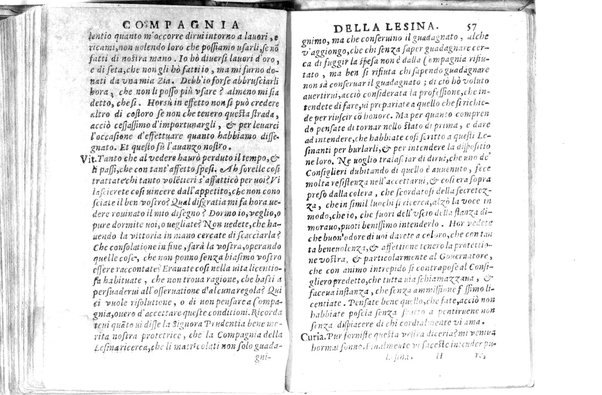 COMPAGNIA
lentio quanto m'occore dirui intorno a lauori, e
ricami, non uolendo loro che possiamo usarli, se nõ
fatti di nostra mano. Io hò diuersi lauori d'oro,
e di seta, che non gli hò fatti io, ma mi furno do-
nati da vna mia Zia. Debb'io forse abbrusciarli
hora, che non li posso più vsare? almeno mi sia
detto, che si. Horsù in effetto non si può credere
altro di costoro se non che tenero questa strada,
acciò cessassimo d'importunargli, & per leuarci
l'occasione d'effettuare quanto habbiamo disse-
gnato. Et questo sù l'auanzo nostro.
Vit. Tanto che al vedere hauró perduto il tempo, &
li passi, che con tant'affetto spesi. Ah sorelle cosi
trattate cõ tanto volõtieri s'affatticò per uoi? Vi
lasciarete cosi uincere dall'appetito, che non cono-
sciate il ben vostro? Qual disgratia mi fa hora ue-
dere rouinato il mio disegno? Dormo io, veglio, o
pure dormite uoi, o uegliate? Non uedete, che ha-
uendo la vittoria in mano cercate di scacciarla?
Che consolatione in fine, farà la vostra, operando
quelle cose, che non ponno senza biasimo vostro
essere raccontate? Erauate cosi nella vita licentio-
fa habituate, che non troua ragione, che basti a
persuaderui all'osseruatione d'alcuna regola? Qui
ci vuole risolutione, o di non pensare a Compa-
gnia, ouero d'accettare queste conditioni. Ricorda
teui quãto ui disse la Signora Prudentia bene me-
rita nostra protetrice, che la Compagnia della
Lesina ricerca, che li matricolati non solo guada-
gni-
DELLA LESINA. 57
gnimo, ma che conseruino il guadagnato, alche
v'aggiongo, che chi senza saper guadagnare cer-
ca di fuggir la spesa non è dalla Compagnia rifiu-
tato, ma ben si rifiuta chi sapendo guadagnare
non sà conseruar il guadagnato: di che hò voluto
auertirui, acciò considerata la professione, che in-
tendete di fare, ui prepariate a quello che si richie-
de per riuscir cõ honore. Ma per quanto compren
do pensate di tornar nello stato di prima, e dare
ad intendere, che habbiate cosi scritto a questi Le-
sinanti per burlarli, & per intender la dispositio
ne loro. Ne uoglio tralasciar di dirui, che uno de'
Consiglieri dubitando di quello è auenuto, fece
molta resistenza nell'accettarui, & cosi era sopra
preso dalla colera, che scordatosi della secretez-
za, che in simil luochi si ricerca, alzò la voce in
modo, che io, che fuori dell'vscio della stanza di-
morauo, puoti benissimo intenderlo. Hor vedete
che buon'odore di uoi hauete dato, con quanta
beneuolenza, & affettione tenero la protettio-
ne vostra, & particolarmente al Gouernatore,
che con animo intrepido si contrapose al Consi-
gliero predetto, che tutta via schiamazzana, &
faceua instanza, che doueßimo esser li-
centiate. Pensate bene quello, che fate, acciò non
habbiate poscia senza frutto a pentiruene non
senza dispiacere di chi cordialmente vi ama.
Curia. Pur forniste questa vostra diceria? mi veniua
hormai sonno. Finalmente vi sareste intender pu-
Lesina. H re,